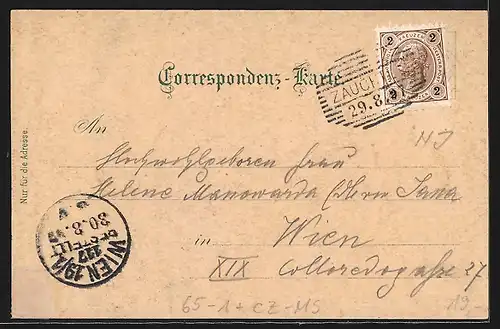 2 KREUZER 2
2 2
Correspondenz-Karte.
ZAUCH
29.8
An
Nur für die Adresse.
Hochwohlgeboren Frau
Helene Manowarda
Wien
in
XIX Colloredogasse 27
WIEN 19/1
117
BESTELLT
30.8.97
65-1+CZ-MS
19.-